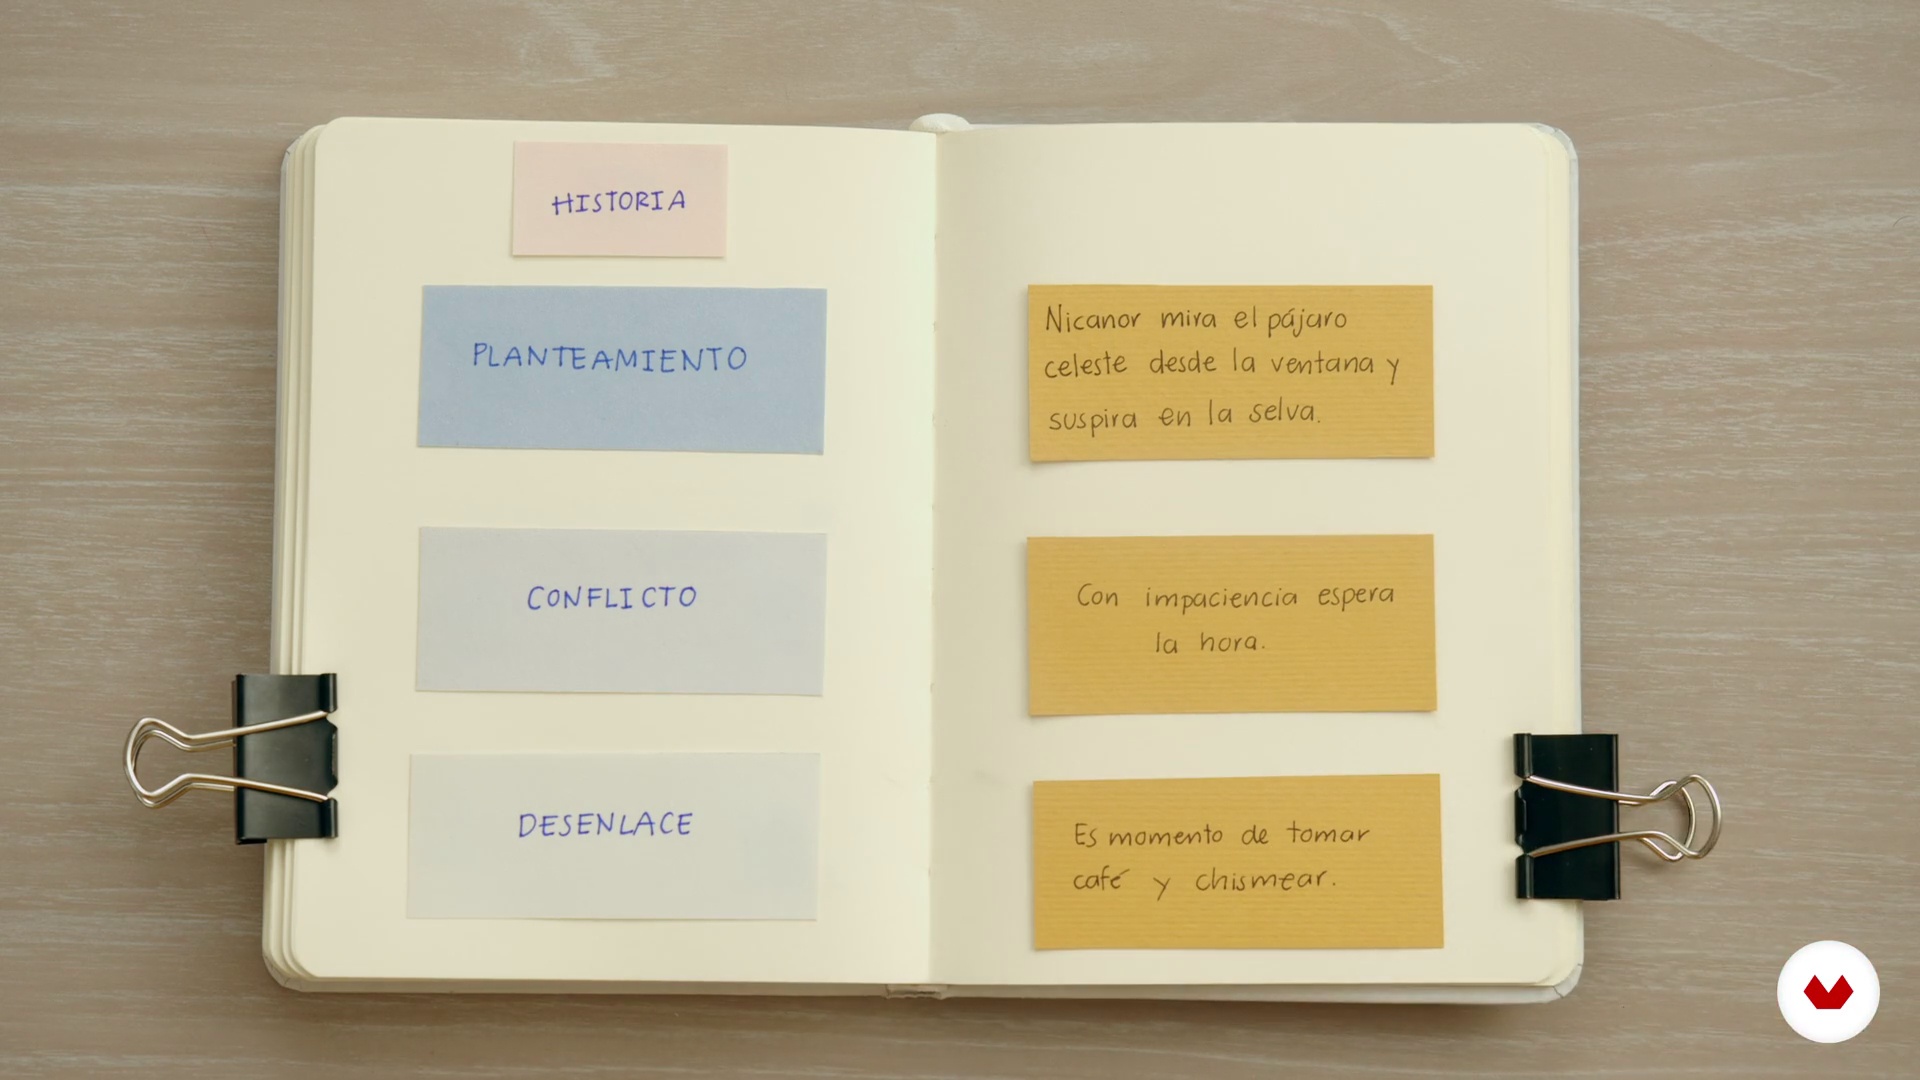 HISTORIA
PLANTEAMIENTO
Nicanor mira el pájaro
celeste desde la ventana y
suspira en la selva.
CONFLICTO
Con impaciencia espera
la hora.
DESENLACE
Es momento de tomar
café y chismear.